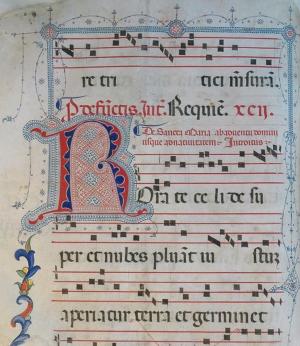 re tri tici mensuram.
Pro defunctis. Int. Requiem. xcij.
De Sancta Maria ab adventu domini
usque ad nativitatem. Introitus.
Rorate celi desu
per et nubes pluant iustum
aperiatur terra et germinet